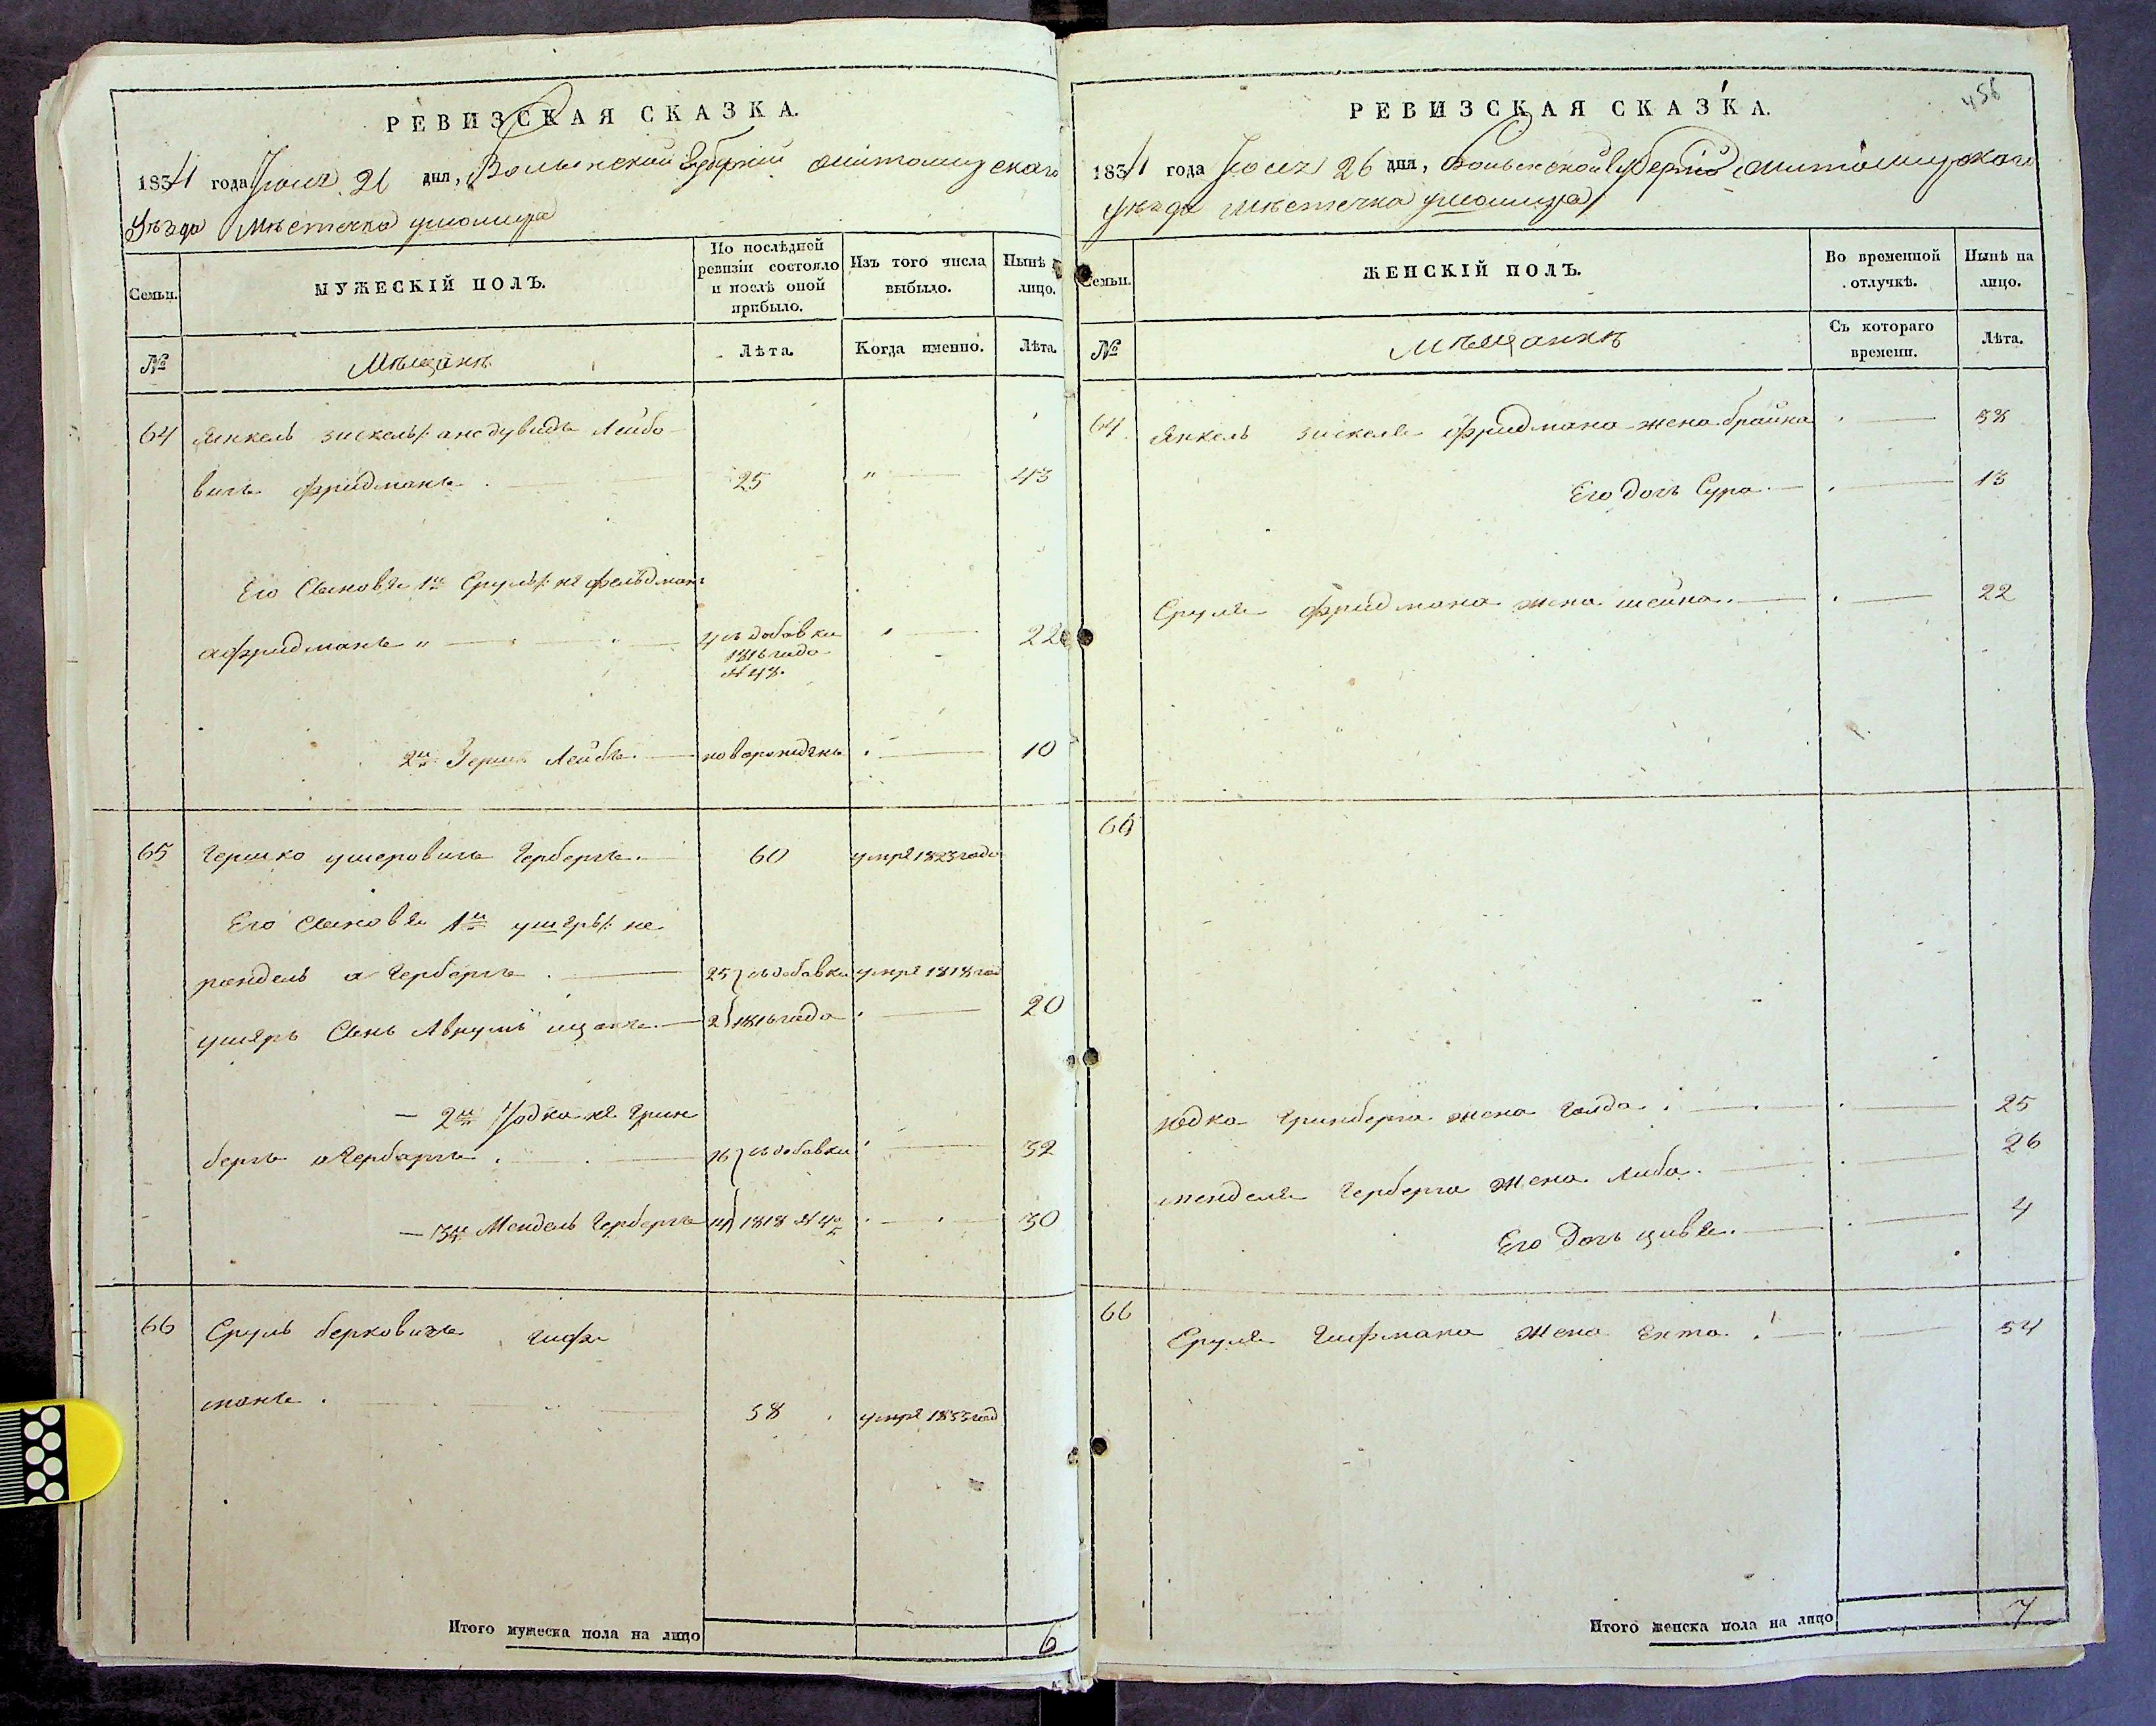 РЕВИЗСКАЯ СКАЗКА.
1834 года Іюля 26 дня, Волынской Губерніи Житомирскаго
Уѣзда Мѣстечка Ушомира
Семьи.
МУЖЕСКІЙ ПОЛЪ.
По послѣдней ревизіи состояло и послѣ оной прибыло.
Изъ того числа выбыло.
Нынѣ лицо.
№
Мѣщанъ
Лѣта.
Когда именно.
Лѣта.
64 Янкель зискель /: а не дувидъ Лейбо
вичъ фридманъ 25 " 43
Его Сыновья 1й Сруль /: не фельдманъ
а фридманъ " 4 съ добавки 1816 года № 48. " 22
2й Герш Лейбъ новорожденъ 10
65 Гершко ушеровичъ Гербергъ 60 умре 1823 года
Его Сыновья 1й ушеръ /: не
рандель а Гербергъ 25 съ добавки умре 1818 год
ушеръ Сынъ Аврумъ ицакъ 2 1816 года 20
2й Юдка не Грин
бергъ а Гербаргъ 16 съ добавки 32
3й Мендель Гербергъ 14 1818 № 30
66 Сруль берковичъ гиф
манъ 58 умре 1833 год
Итого мужеска пола на лицо 6
456
РЕВИЗСКАЯ СКАЗКА.
1834 года Іюля 26 дня, Волынской Губерніи Житомирскаго
Уѣзда Мѣстечка Ушомира
Семьи.
ЖЕНСКІЙ ПОЛЪ.
Во временной отлучкѣ.
Нынѣ на лицо.
№
Мѣщанкъ
Съ котораго времени.
Лѣта.
64 Янкель зискеля Фридмана жена брайна 38
Его дочь Сура 13
Сруля фридмана жена шейна 22
65
Юдка Гринберга жена Голда 25
менделя Герберга жена Либа 26
Его дочь цивья 4
66 Сруля Гифмана жена Ента 54
Итого женска пола на лицо 7